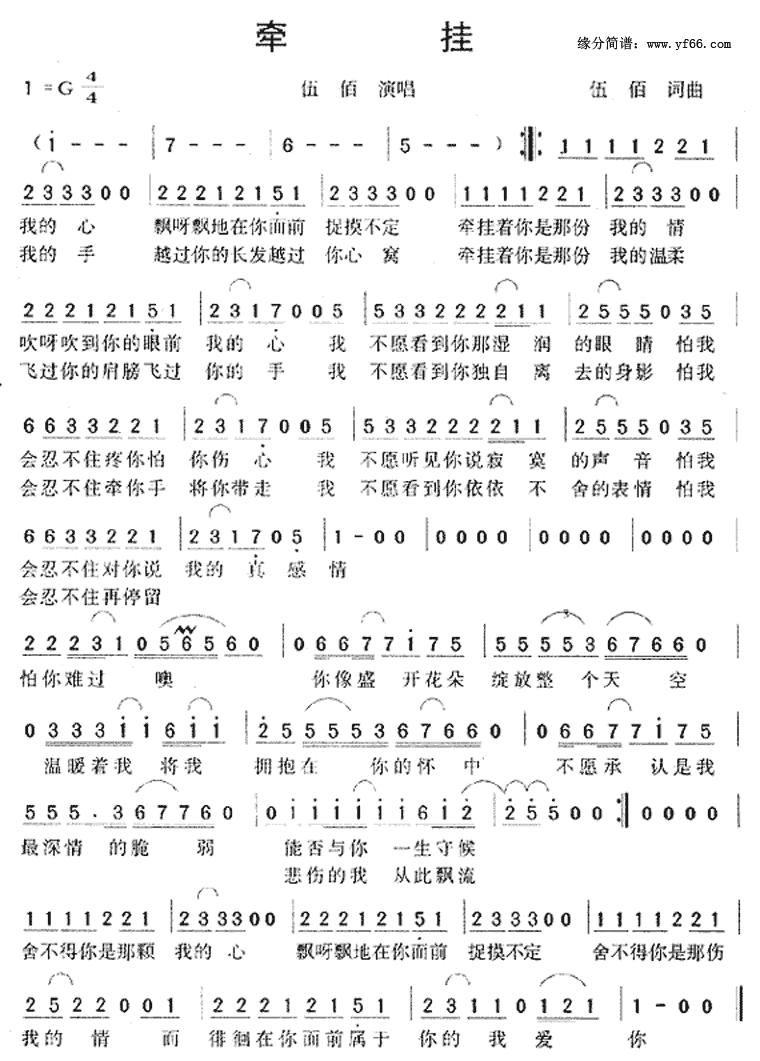 牵 挂
缘分简谱：www.yf66.com
1=G 4/4 伍 佰 演唱 伍 佰 词曲
( i - - - | 7 - - - | 6 - - - | 5 - - - ) 𝄆 1 1 1 1 2 2 1 |
2 3 3 3 3 0 0 | 2 2 2 1 2 1 5 1 | 2 3 3 3 3 0 0 | 1 1 1 1 2 2 1 | 2 3 3 3 0 0 |
我的 心 飘呀飘地在你面前 捉摸不定 牵挂着你是那份 我的 情
我的 手 越过你的长发越过 你心 窝 牵挂着你是那份 我的温柔
2 2 2 1 2 1 5 1 | 2 3 1 7 0 0 5 | 5 3 3 2 2 2 2 1 1 | 2 5 5 5 0 3 5 |
吹呀吹到你的眼前 我的 心 我 不愿看到你那湿 润 的眼 睛 怕我
飞过你的肩膀飞过 你的 手 我 不愿看到你独自 离 去的身影 怕我
6 6 3 3 2 2 1 | 2 3 1 7 0 0 5 | 5 3 3 2 2 2 2 1 1 | 2 5 5 5 5 0 3 5 |
会忍不住疼你怕 你伤 心 我 不愿听见你说寂 寞 的声 音 怕我
会忍不住牵你手 将你带走 我 不愿看到你依依 不 舍的表情 怕我
6 6 3 3 2 2 1 | 2 3 1 7 0 5 | 1 - 0 0 | 0 0 0 0 | 0 0 0 0 | 0 0 0 0 |
会忍不住对你说 我的 真 感 情
会忍不住再停留
2 2 2 3 1 0 5 6 5 6 0 | 0 6 6 7 7 i 7 5 | 5 5 5 5 3 6 7 6 6 0 |
怕你难过 噢 你像盛 开花朵 绽放整 个天 空
0 3 3 3 i i 6 i i | 2 5 5 5 5 3 6 7 6 6 0 | 0 6 6 7 7 i 7 5 |
温暖着我 将我 拥抱在 你的怀 中 不愿承 认是我
5 5 5 . 3 6 7 7 6 0 | 0 i i i i i i 6 i 2 | 2 5 5 0 0 𝄇 0 0 0 0 |
最深情 的脆 弱 能否与你 一生守候
悲伤的我 从此飘流
1 1 1 1 2 2 1 | 2 3 3 3 3 0 0 | 2 2 2 1 2 1 5 1 | 2 3 3 3 0 0 | 1 1 1 1 2 2 1 |
舍不得你是那颗 我的 心 飘呀飘地在你面前 捉摸不定 舍不得你是那伤
2 5 2 2 0 0 1 | 2 2 2 1 2 1 5 1 | 2 3 1 1 0 1 2 1 | 1 - 0 0 ‖
我的 情 而 徘徊在你面前属于 你的 我 爱 你